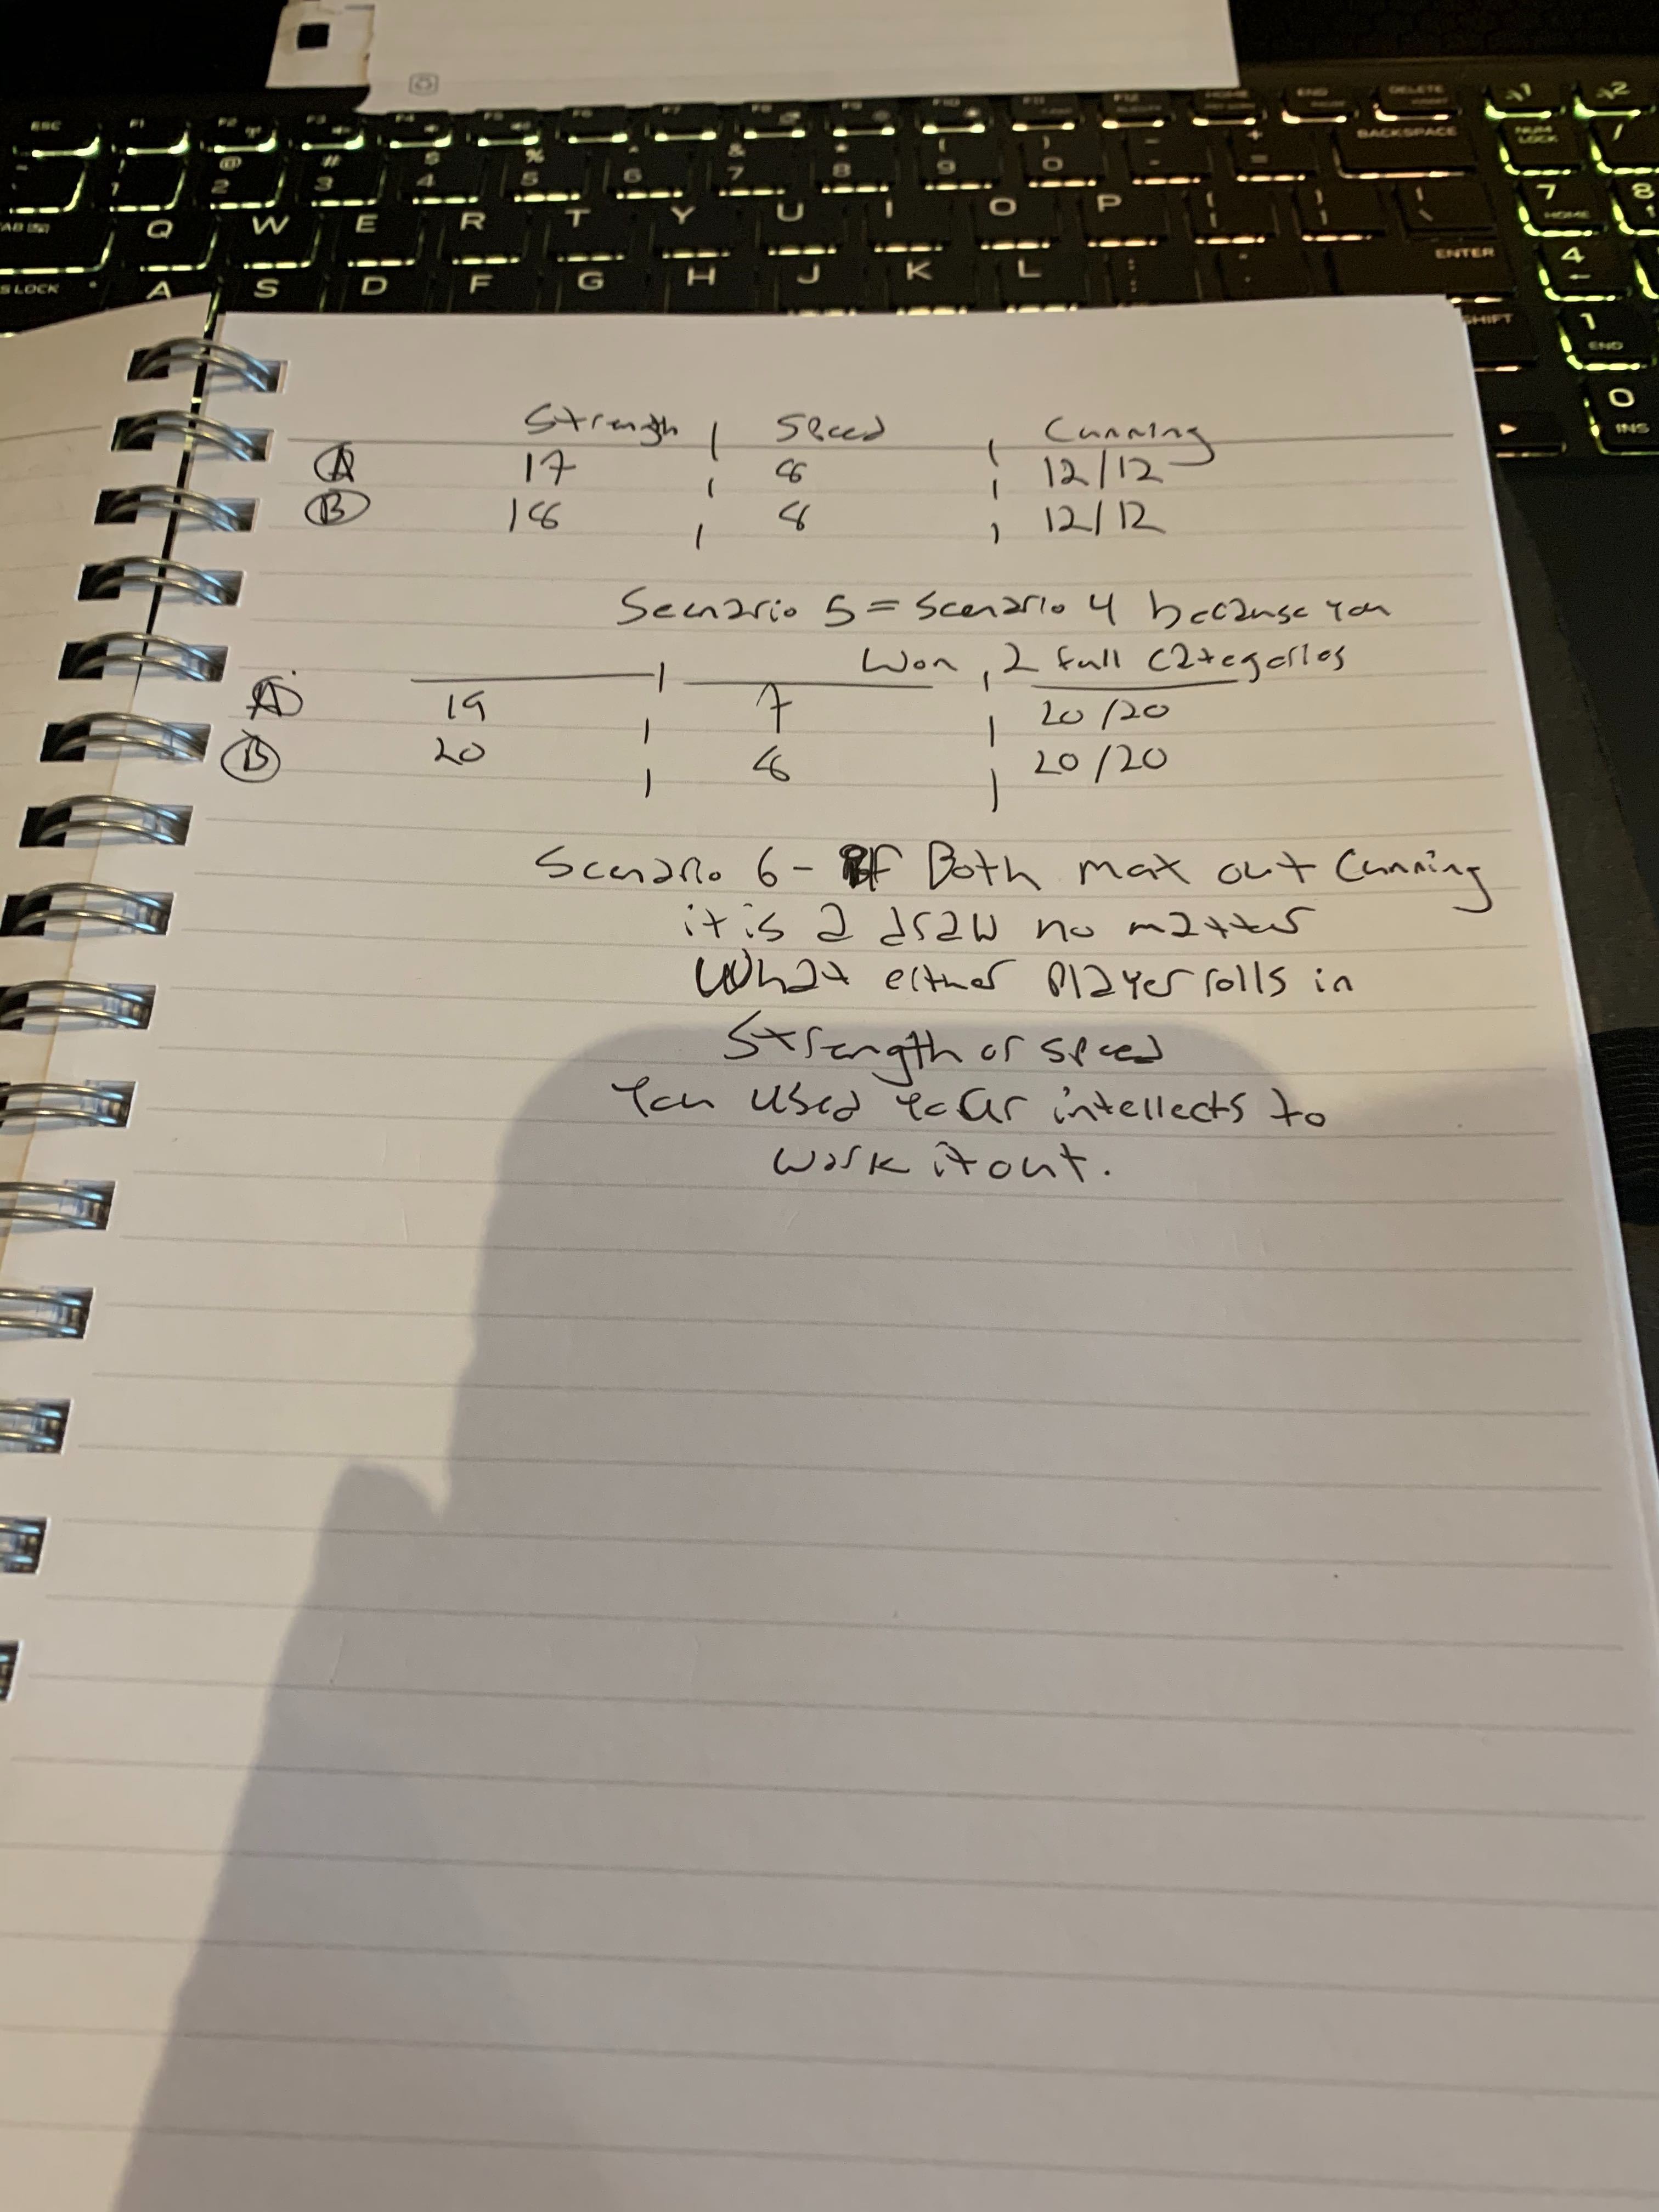 ESC F1 F2 F3 F4 F5 F6 F7 F8 F9 F10 F11 F12 HOME END DELETE
1 @ 2 # 3 $ 4 % 5 ^ 6 & 7 * 8 ( 9 ) 0 - + = BACKSPACE NUM LOCK /
TAB Q W E R T Y U I O P 7 HOME 8
S LOCK A S D F G H J K L ENTER 4
SHIFT 1 END
0 INS
Strength | Speed | Cunning
A 17 | 8 | 12/12
B 18 | 8 | 12/12
Scenario 5 = Scenario 4 because you
Won 2 full categories
A 19 | 7 | 20/20
B 20 | 8 | 20/20
Scenario 6 - If Both max out Cunning
it is a draw no matter
What either Player rolls in
Strength or speed
You used your intellects to
work it out.